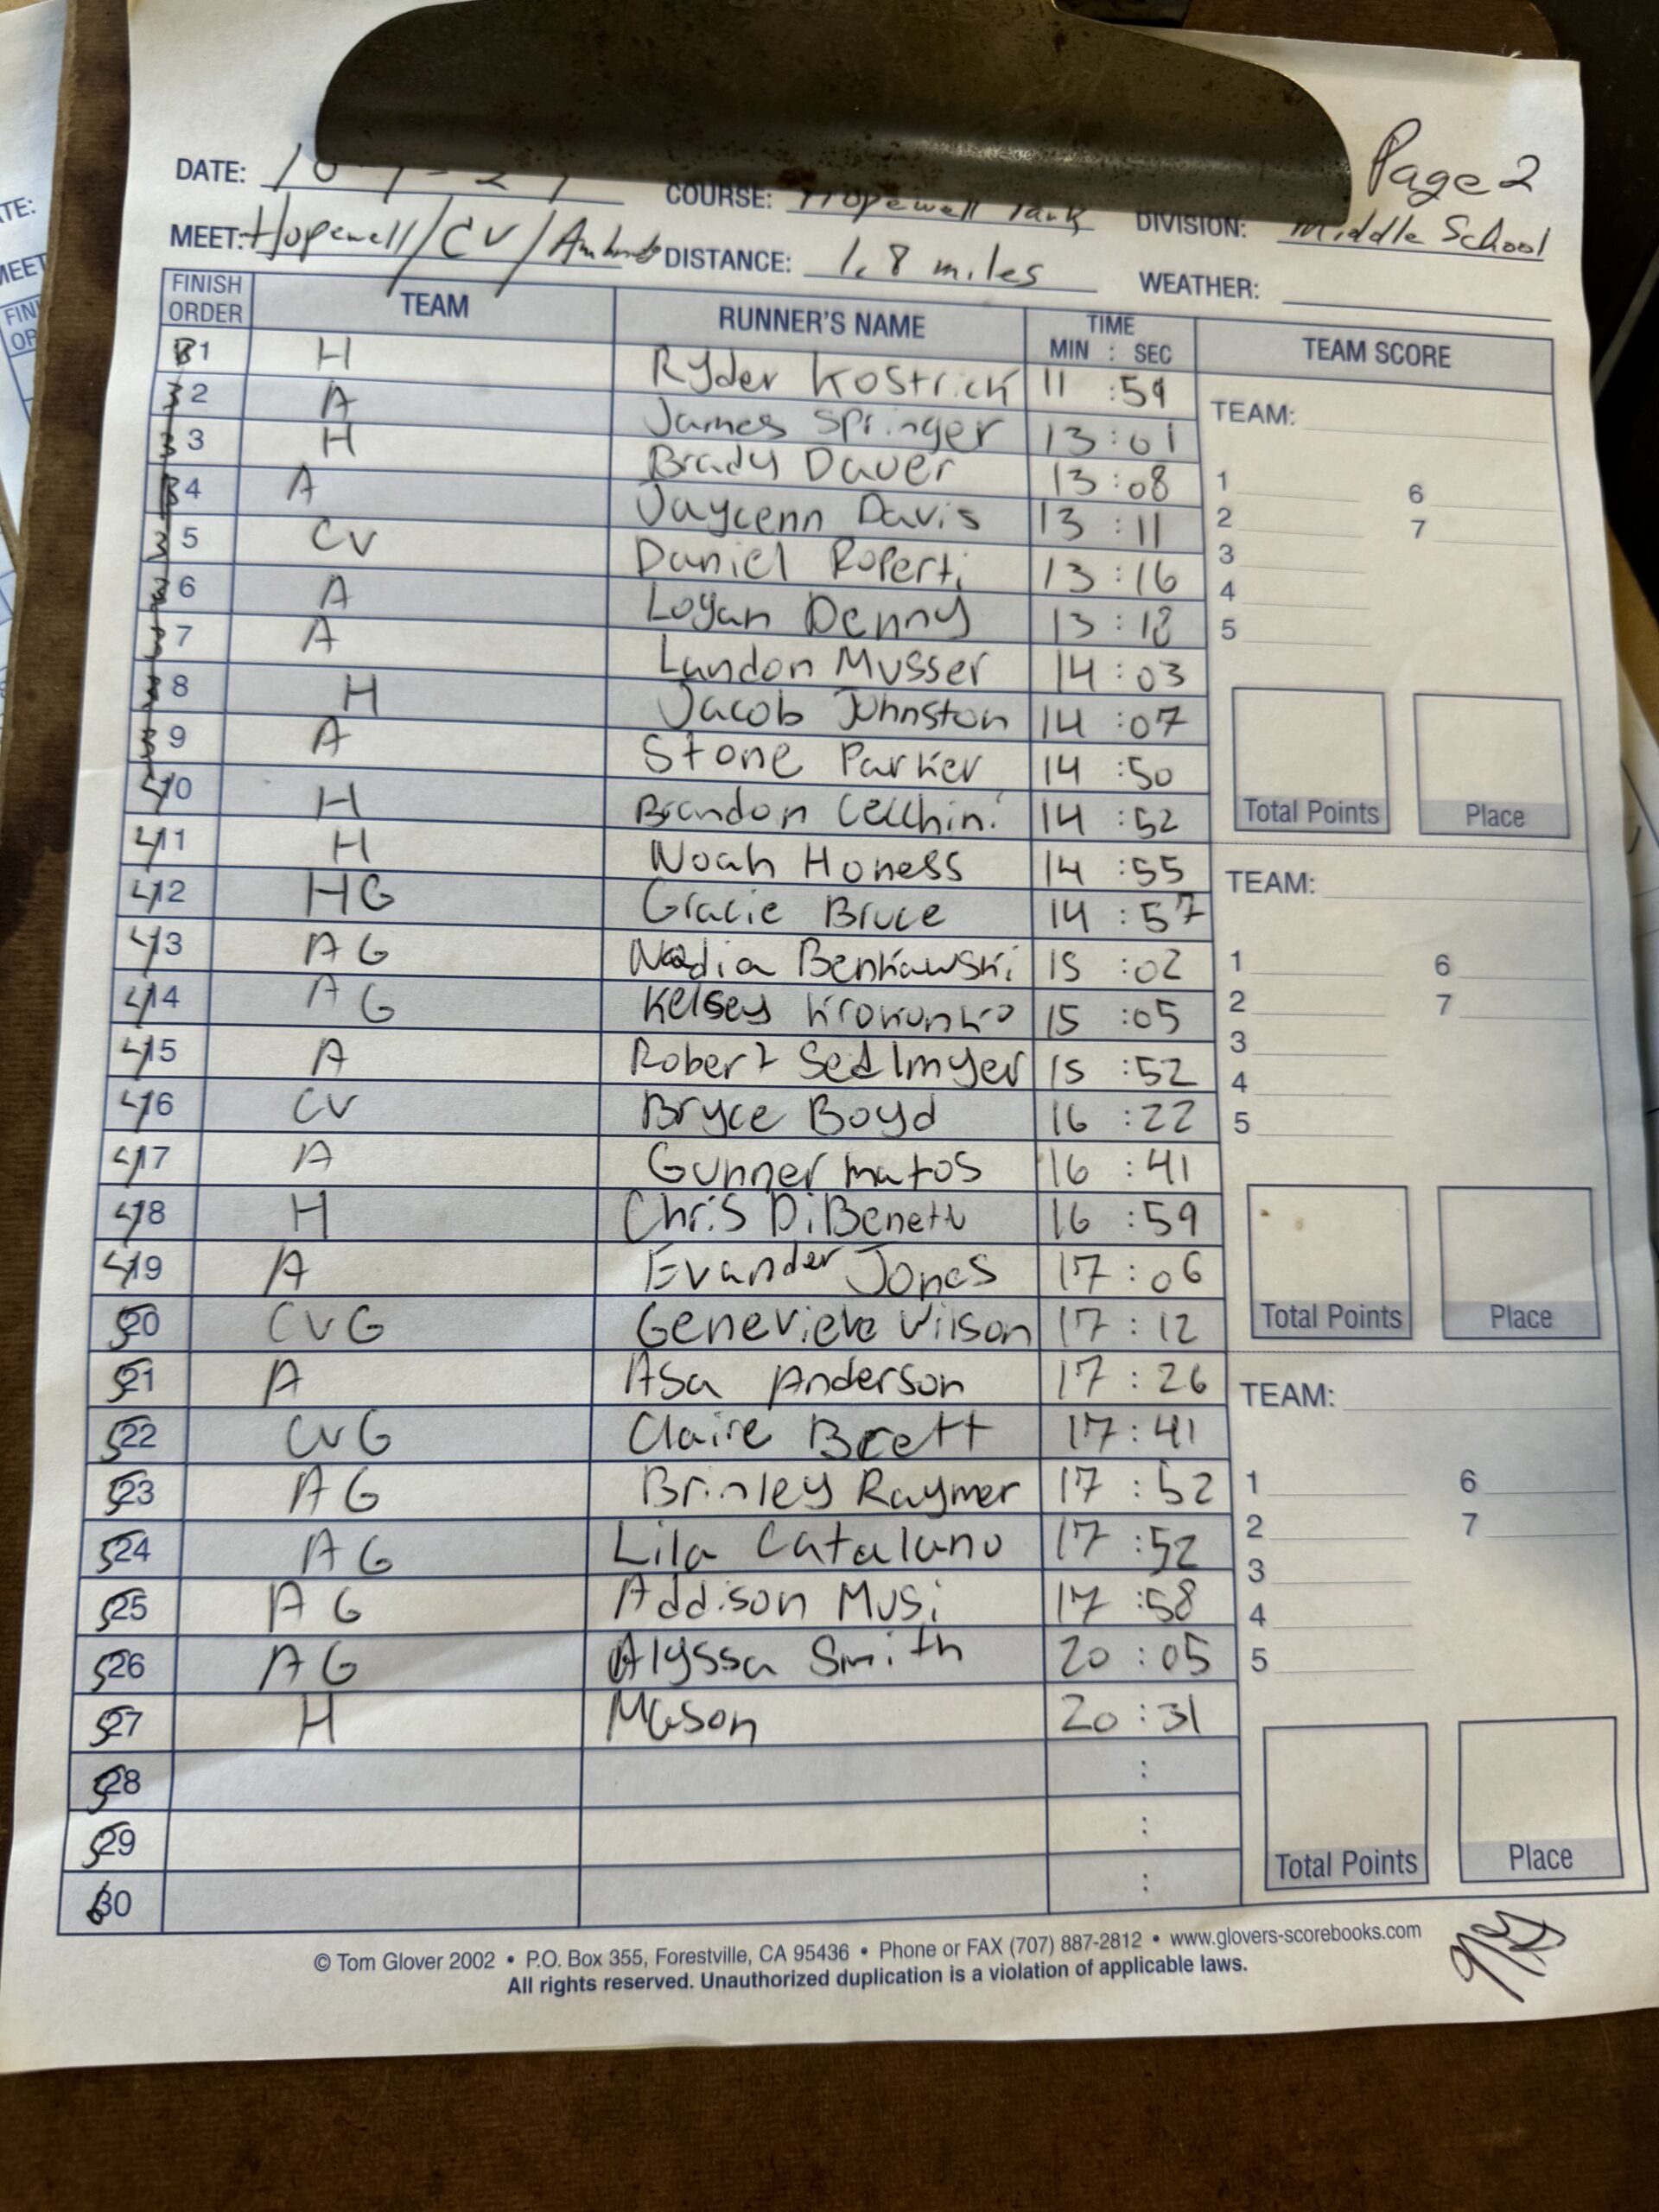 Page 2
DATE: 10
COURSE: Hopewell Park
DIVISION: Middle School
MEET: Hopewell/CV/
DISTANCE: 1.8 miles
WEATHER:
FINISH ORDER TEAM RUNNER'S NAME TIME MIN : SEC TEAM SCORE
31 H Ryder Kostrick 11 :59
32 A James Springer 13 :01
33 H Brady Daver 13 :08
34 A Jaycenn Davis 13 :11
35 CV Daniel Roperti 13 :16
36 A Logan Denny 13 :18
37 A Landon Musser 14 :03
38 H Jacob Johnston 14 :07
39 A Stone Parker 14 :50
40 H Brandon Cecchini 14 :52
41 H Noah Honess 14 :55
42 HG Gracie Bruce 14 :57
43 AG Nadia Benkawski 15 :02
44 AG Kelsey 15 :05
45 A Robert Sedlmyer 15 :52
46 CV Bryce Boyd 16 :22
47 A Gunner Matos 16 :41
48 H Chris DiBenetto 16 :59
49 A Evander Jones 17 :06
50 CVG Genevieve Wilson 17 :12
51 A Asa Anderson 17 :26
52 CVG Claire Brett 17 :41
53 AG Brinley Raymer 17 :52
54 AG Lila Catalano 17 :52
55 AG Addison Musi 17 :58
56 AG Alyssa Smith 20 :05
57 H Mason 20 :31
58 :
59 :
60 :
TEAM:
1 6
2 7
3
4
5
Total Points Place
TEAM:
1 6
2 7
3
4
5
Total Points Place
TEAM:
1 6
2 7
3
4
5
Total Points Place
© Tom Glover 2002 • P.O. Box 355, Forestville, CA 95436 • Phone or FAX (707) 887-2812 • www.glovers-scorebooks.com
All rights reserved. Unauthorized duplication is a violation of applicable laws.